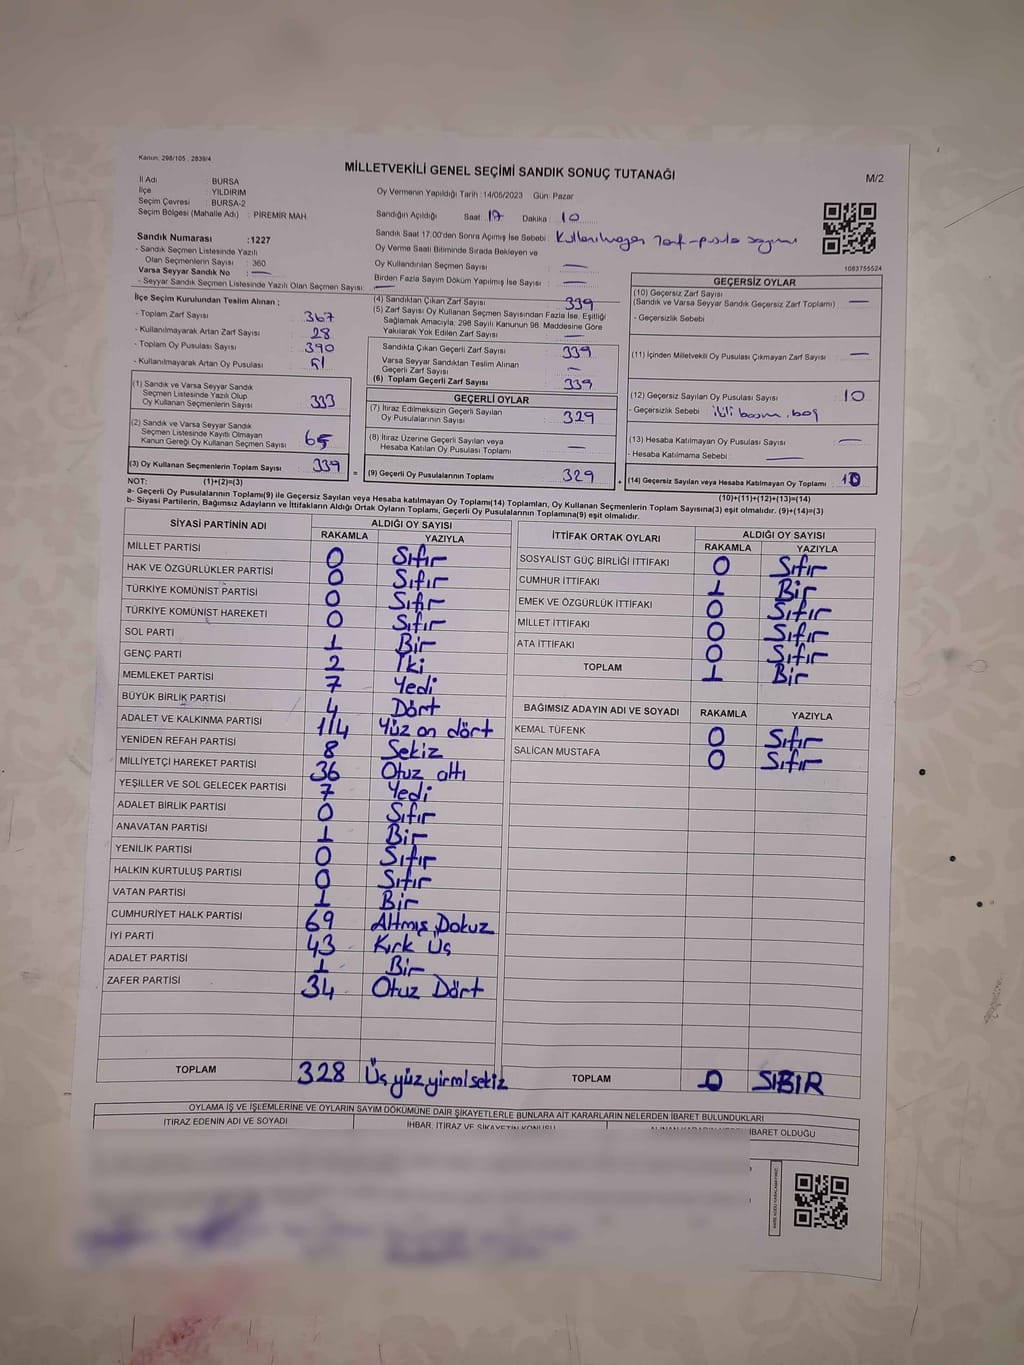 Kanun: 298/105 , 2839/4
MİLLETVEKİLİ GENEL SEÇİMİ SANDIK SONUÇ TUTANAĞI
M/2
İl Adı : BURSA
İlçe : YILDIRIM
Seçim Çevresi : BURSA-2
Seçim Bölgesi (Mahalle Adı) : PİREMİR MAH
Oy Vermenin Yapıldığı Tarih : 14/05/2023 Gün: Pazar
Sandığın Açıldığı Saat 17 Dakika 10
Sandık Saat 17:00'den Sonra Açımış İse Sebebi: Kullanılmayan zarf-pusula sayımı
Oy Verme Saati Bitiminde Sırada Bekleyen ve
Oy Kullandırılan Seçmen Sayısı —
Birden Fazla Sayım Döküm Yapılmış İse Sayısı : —
1083755524
Sandık Numarası :1227
- Sandık Seçmen Listesinde Yazılı
Olan Seçmenlerin Sayısı : 360
Varsa Seyyar Sandık No : —
- Seyyar Sandık Seçmen Listesinde Yazılı Olan Seçmen Sayısı: —
İlçe Seçim Kurulundan Teslim Alınan ;
- Toplam Zarf Sayısı : 367
- Kullanılmayarak Artan Zarf Sayısı : 28
- Toplam Oy Pusulası Sayısı : 390
- Kullanılmayarak Artan Oy Pusulası : 51
(1) Sandık ve Varsa Seyyar Sandık
Seçmen Listesinde Yazılı Olup
Oy Kullanan Seçmenlerin Sayısı : 333
(2) Sandık ve Varsa Seyyar Sandık
Seçmen Listesinde Kayıtlı Olmayan
Kanun Gereği Oy Kullanan Seçmen Sayısı :
(3) Oy Kullanan Seçmenlerin Toplam Sayısı : 339
(4) Sandıktan Çıkan Zarf Sayısı 339
(5) Zarf Sayısı Oy Kullanan Seçmen Sayısından Fazla İse, Eşitliği
Sağlamak Amacıyla; 298 Sayılı Kanunun 98. Maddesine Göre
Yakılarak Yok Edilen Zarf Sayısı —
Sandıkta Çıkan Geçerli Zarf Sayısı 339
Varsa Seyyar Sandıktan Teslim Alınan
Geçerli Zarf Sayısı —
(6) Toplam Geçerli Zarf Sayısı 339
GEÇERLİ OYLAR
(7) İtiraz Edilmeksizin Geçerli Sayılan
Oy Pusulalarının Sayısı : 329
(8) İtiraz Üzerine Geçerli Sayılan veya
Hesaba Katılan Oy Pusulası Toplamı —
= (9) Geçerli Oy Pusulalarının Toplamı 329
GEÇERSİZ OYLAR
(10) Geçersiz Zarf Sayısı —
(Sandık ve Varsa Seyyar Sandık Geçersiz Zarf Toplamı)
- Geçersizlik Sebebi
(11) İçinden Milletvekili Oy Pusulası Çıkmayan Zarf Sayısı —
(12) Geçersiz Sayılan Oy Pusulası Sayısı 10
- Geçersizlik Sebebi : ikili basım, boş
(13) Hesaba Katılmayan Oy Pusulası Sayısı —
- Hesaba Katılmama Sebebi : —
+ (14) Geçersiz Sayılan veya Hesaba Katılmayan Oy Toplamı : 10
NOT: (1)+(2)=(3) (10)+(11)+(12)+(13)=(14)
a- Geçerli Oy Pusulalarının Toplamı(9) ile Geçersiz Sayılan veya Hesaba katılmayan Oy Toplamı(14) Toplamları, Oy Kullanan Seçmenlerin Toplam Sayısına(3) eşit olmalıdır. (9)+(14)=(3)
b- Siyasi Partilerin, Bağımsız Adayların ve İttifakların Aldığı Ortak Oyların Toplamı, Geçerli Oy Pusulalarının Toplamına(9) eşit olmalıdır.
SİYASİ PARTİNİN ADI ALDIĞI OY SAYISI
RAKAMLA YAZIYLA
MİLLET PARTİSİ 0 Sıfır
HAK VE ÖZGÜRLÜKLER PARTİSİ 0 Sıfır
TÜRKİYE KOMÜNİST PARTİSİ 0 Sıfır
TÜRKİYE KOMÜNİST HAREKETİ 0 Sıfır
SOL PARTİ 1 Bir
GENÇ PARTİ 2 İki
MEMLEKET PARTİSİ 7 Yedi
BÜYÜK BİRLİK PARTİSİ 4 Dört
ADALET VE KALKINMA PARTİSİ 114 Yüz on dört
YENİDEN REFAH PARTİSİ 8 Sekiz
MİLLİYETÇİ HAREKET PARTİSİ 36 Otuz altı
YEŞİLLER VE SOL GELECEK PARTİSİ 7 Yedi
ADALET BİRLİK PARTİSİ 0 Sıfır
ANAVATAN PARTİSİ 1 Bir
YENİLİK PARTİSİ 0 Sıfır
HALKIN KURTULUŞ PARTİSİ 0 Sıfır
VATAN PARTİSİ 1 Bir
CUMHURİYET HALK PARTİSİ 69 Altmış Dokuz
İYİ PARTİ 43 Kırk Üç
ADALET PARTİSİ 1 Bir
ZAFER PARTİSİ 34 Otuz Dört
TOPLAM 328 Üç yüz yirmi sekiz
İTTİFAK ORTAK OYLARI ALDIĞI OY SAYISI
RAKAMLA YAZIYLA
SOSYALİST GÜÇ BİRLİĞİ İTTİFAKI 0 Sıfır
CUMHUR İTTİFAKI 1 Bir
EMEK VE ÖZGÜRLÜK İTTİFAKI 0 Sıfır
MİLLET İTTİFAKI 0 Sıfır
ATA İTTİFAKI 0 Sıfır
TOPLAM 1 Bir
BAĞIMSIZ ADAYIN ADI VE SOYADI RAKAMLA YAZIYLA
KEMAL TÜFENK 0 Sıfır
SALİCAN MUSTAFA 0 Sıfır
TOPLAM 0
OYLAMA İŞ VE İŞLEMLERİNE VE OYLARIN SAYIM DÖKÜMÜNE DAİR ŞİKAYETLERLE BUNLARA AİT KARARLARIN NELERDEN İBARET BULUNDUKLARI
İTİRAZ EDENİN ADI VE SOYADI
İHBAR, İTİRAZ VE ŞİKAYETİN KONUSU
İBARET OLDUĞU